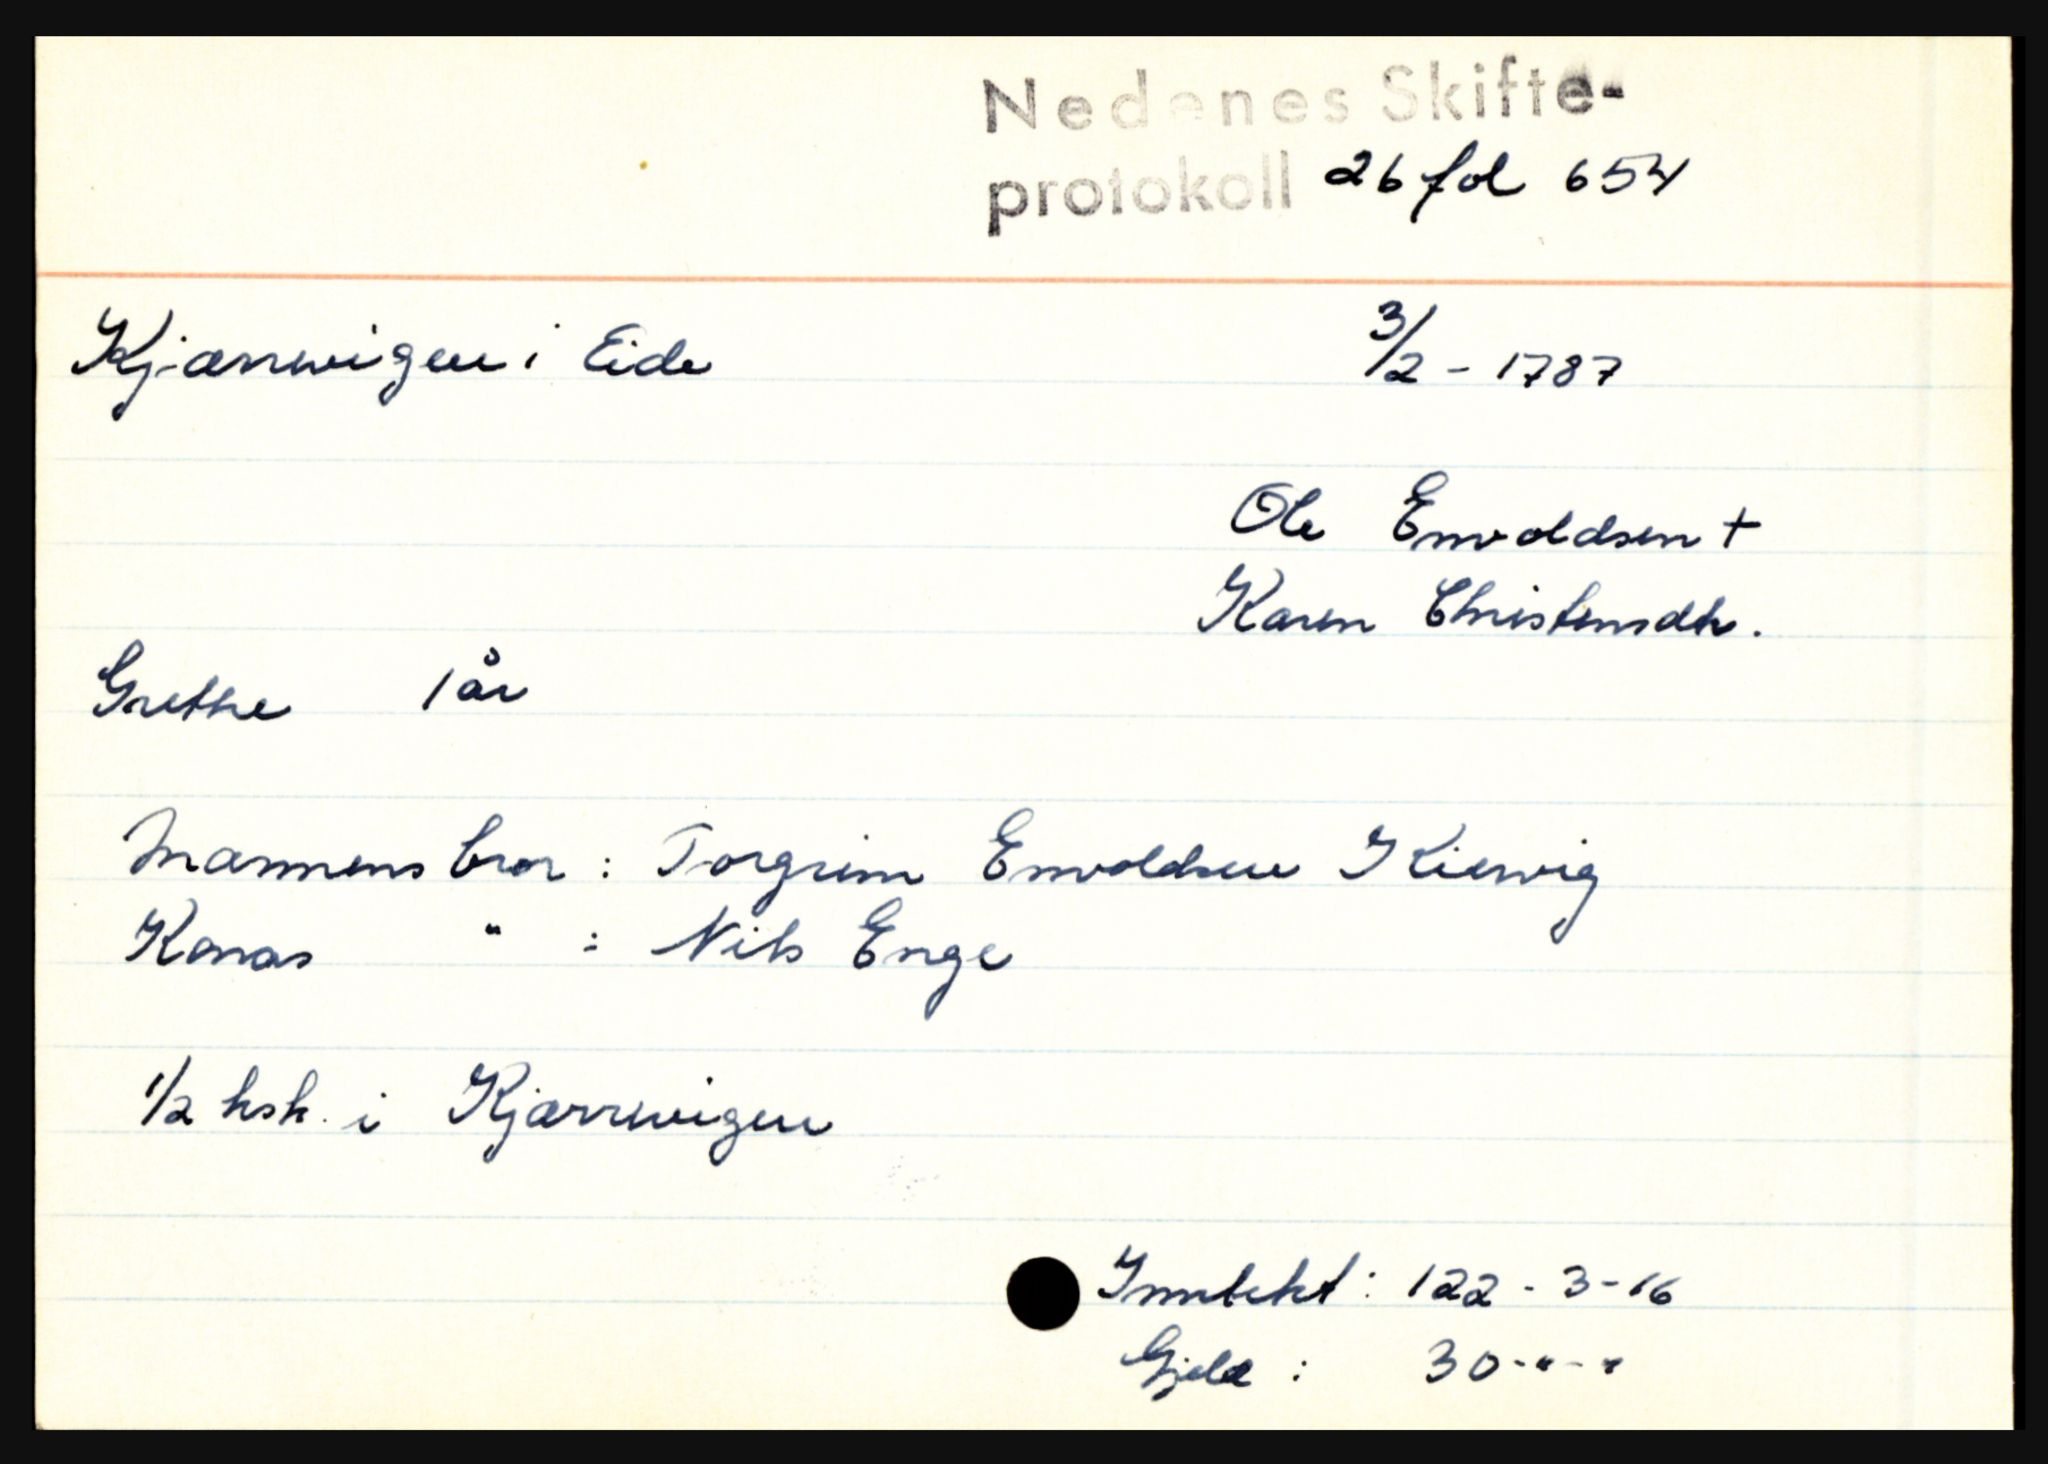 Nedenes Skifte-
protokoll 26 fol 654
Kjærrwigen i Eide 3/2 - 1787
Ole Enwoldsen +
Karen Christensdtr.
Grethe 1 år
Mannens bror : Torgrim Enwoldsen Kierwig
Konas " : Nils Enge
1/2 hsk. i Kjærrwigen
Inntekt : 122 - 3 - 16
Gjeld : 30 - " - "